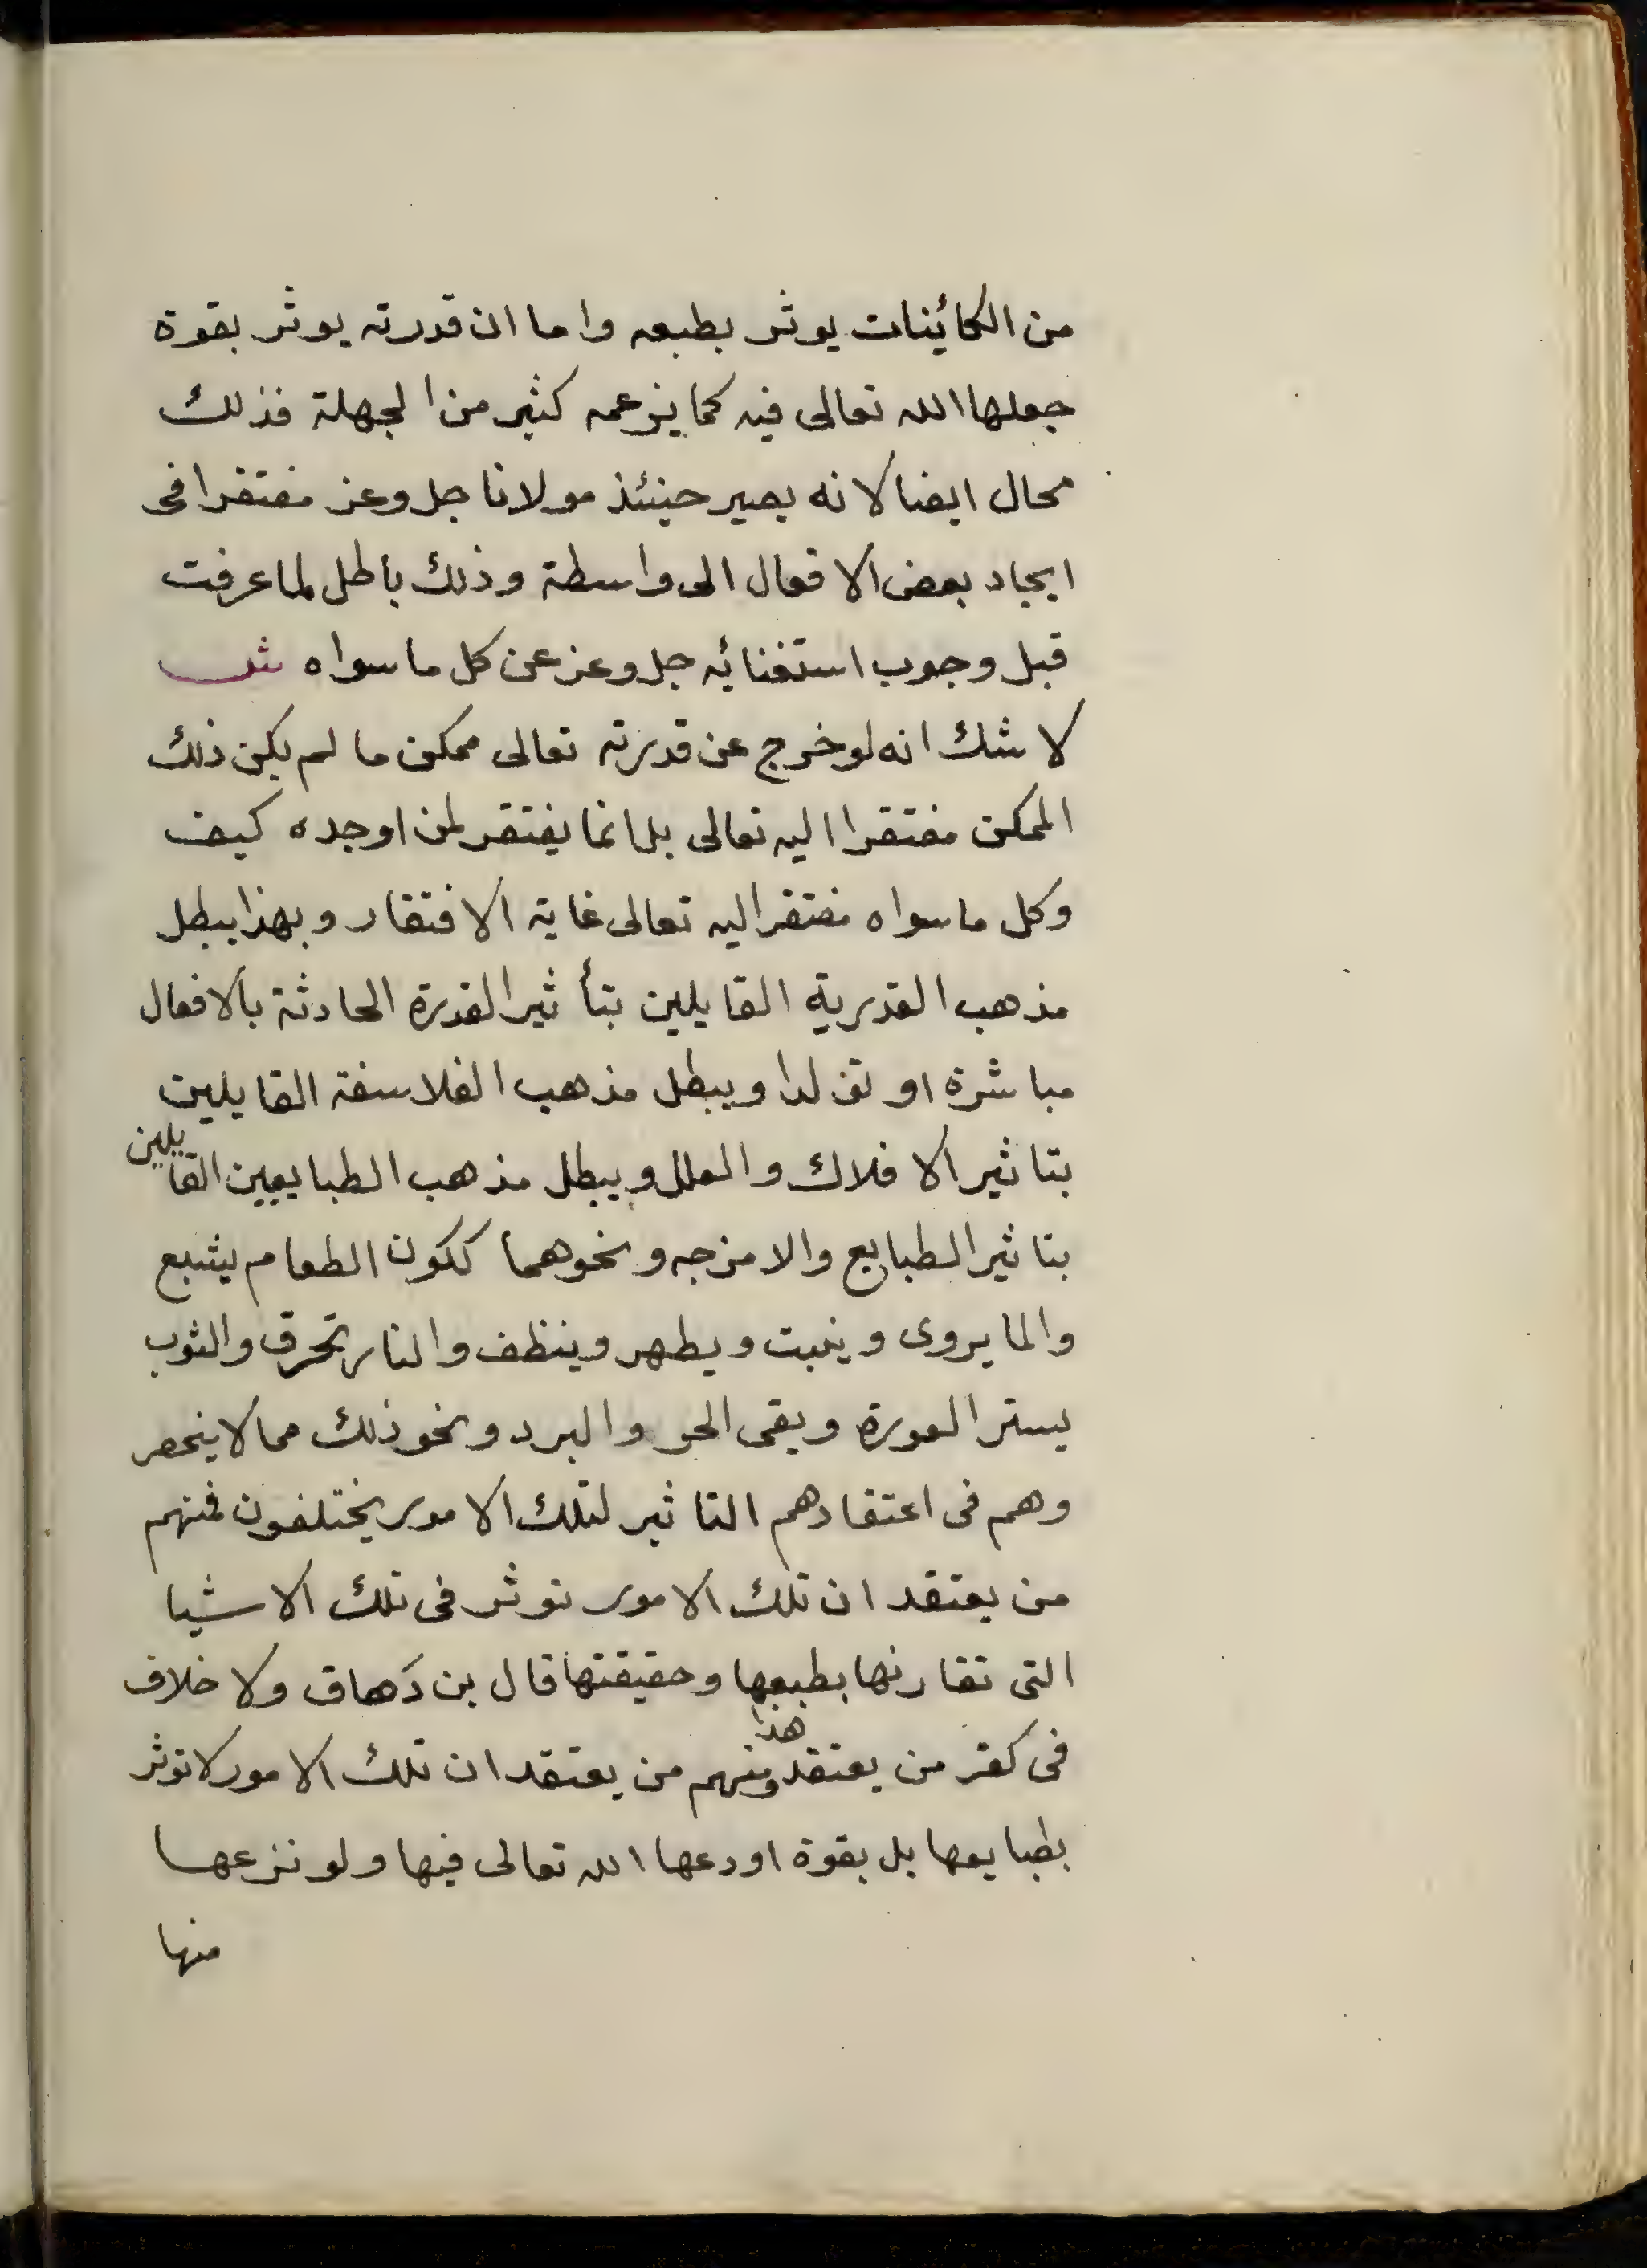 من الكائينات يوثر بطبعه واما ان قدرته يوثر بقوة
جعلها الله تعالى فيه كما يزعمه كثير من الجهلة فذلك
محال ايضا لانه يصير حينئذ مولانا جل وعز مفتقرا فى
ايجاد بعض الافعال الى واسطة وذلك باطل لما عرفت
قبل وجوب استغنائه جل وعز عن كل ما سواه
لا شك انه لو خرج عن قدرته تعالى ممكن ما لم يكن ذلك
الممكن مفتقرا اليه تعالى بل انما يفتقر لمن اوجده كيف
وكل ما سواه مفتقر اليه تعالى غاية الافتقار وبهذا يبطل
مذهب القدرية القايلين بتأثير القدرة الحادثة بالافعال
مباشرة او تولدا ويبطل مذهب الفلاسفة القايلين
بتاثير الافلاك والعلل ويبطل مذهب الطبايعين القايلين
بتاثير الطبايع والامزجه ونحوهما ككون الطعام يشبع
والما يروى وينبت ويطهر وينظف والنار تحرق والثوب
يستر العورة ويقى الحر والبرد ونحو ذلك مما لا ينحصر
وهم فى اعتقادهم التاثير لتلك الامور يختلفون فمنهم
من يعتقد ان تلك الامور توثر فى تلك الاشيا
التى تقارنها بطبعها وحقيقتها قال بن دهاق ولا خلاف
فى كفر من يعتقد هذا ومنهم من يعتقد ان تلك الامور لا توثر
بطبايعها بل بقوة اودعها الله تعالى فيها ولو نزعها
منها